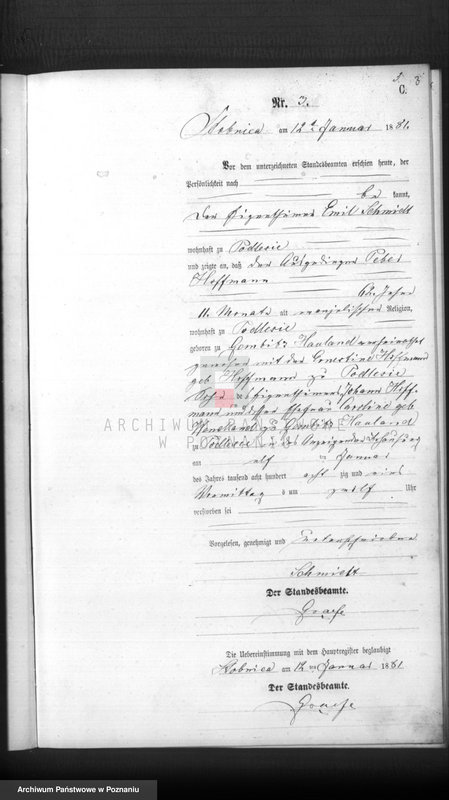 C.
Nr. 3.
Kobnica am 12t Januar 1881.
Vor dem unterzeichneten Standesbeamten erschien heute, der
Persönlichkeit nach
be kannt,
der Eigenthümer Emil Schmidt
wohnhaft zu Podlesie
und zeigte an, daß der Ausgedinger
Hoffmann
Jahre
11 Monate alt evangelischer Religion,
wohnhaft zu Podlesie
geboren zu Gembitz Hauland verheirathet
gewesen mit der Ernestine Hoffmann
geb. Hoffmann zu Podlesie
Sohn des Eigenthümers Johann Hoff-
mann und dessen Ehefrau geb.
zu Gembitz Hauland
zu Podlesie in des Anzeigenden Behausung
am elf ten Januar
des Jahres tausend acht hundert acht zig und eins
Vormittag s um zwölf Uhr
verstorben sei
Vorgelesen, genehmigt und unterschrieben
Schmidt
Der Standesbeamte.
Die Uebereinstimmung mit dem Hauptregister beglaubigt
Kobnica am 12 ten Januar 1881
Der Standesbeamte.
ARCHIWUM PAŃSTWOWE
W POZNANIU
Archiwum Państwowe w Poznaniu